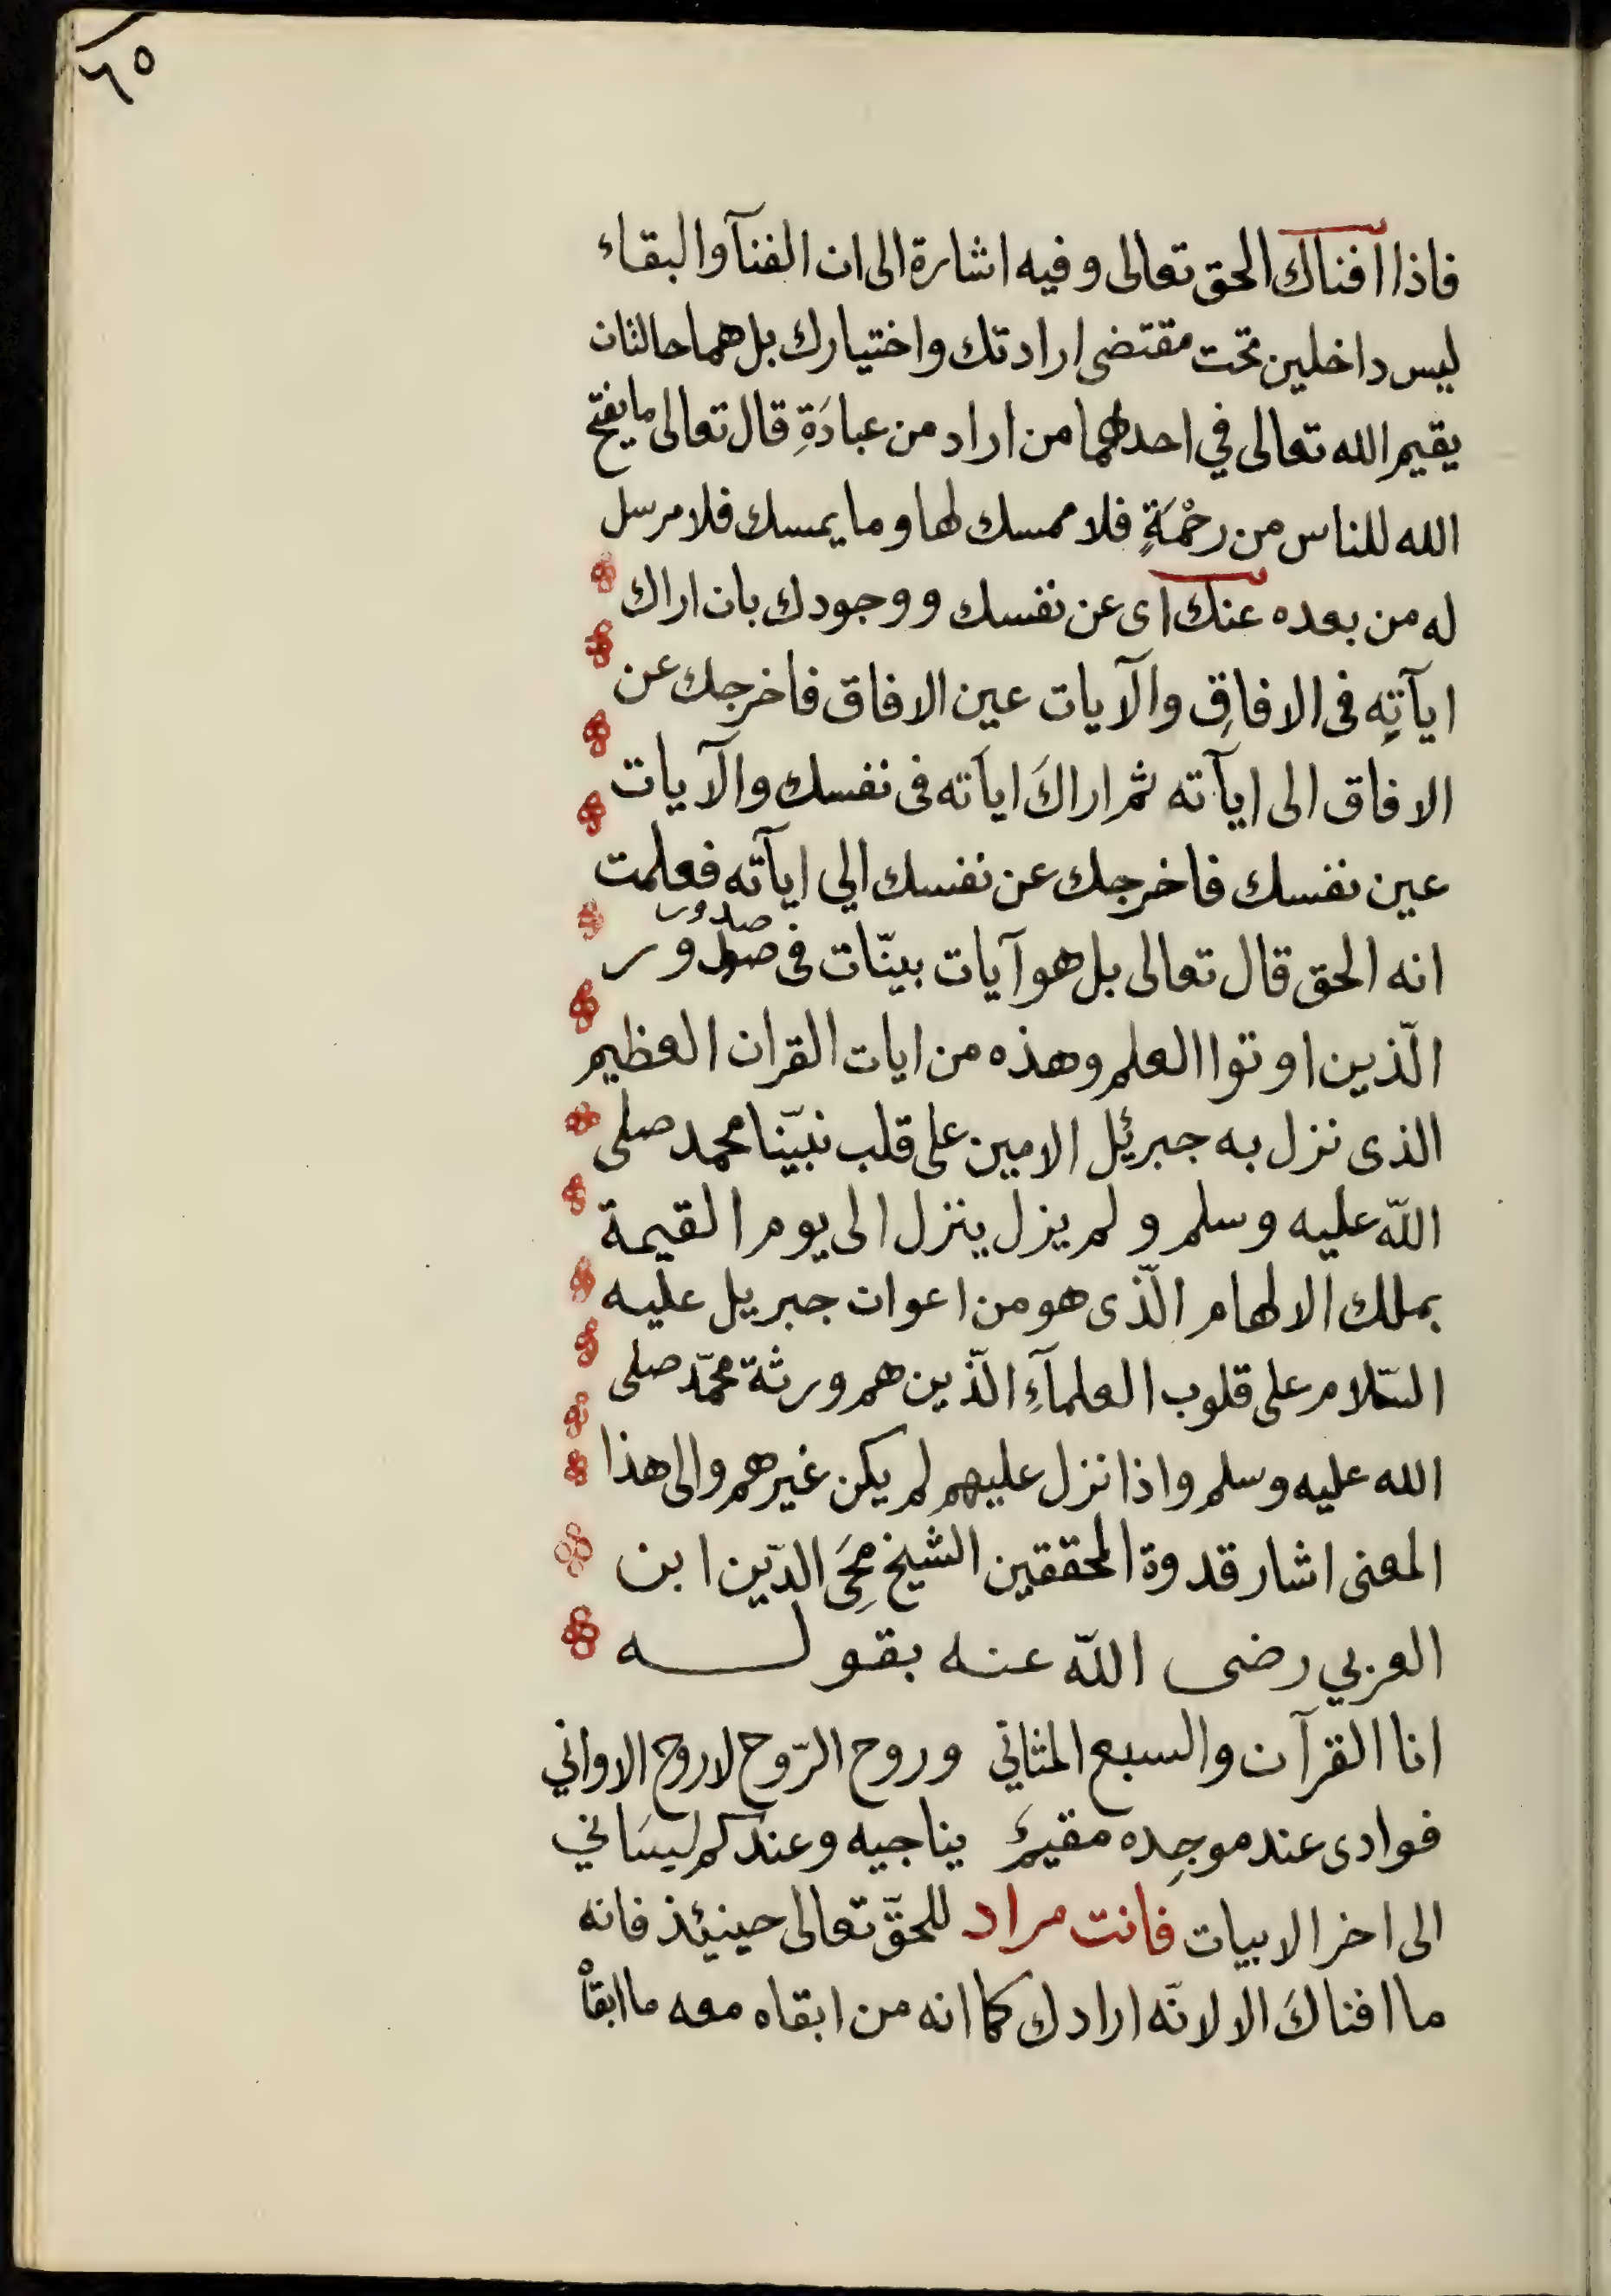 ٦٥
فاذا افناك الحق تعالى وفيه اشارة الى ان الفنآ والبقاء
ليس داخلين تحت مقتضى ارادتك واختيارك بل هما حالتان
يقيم الله تعالى في احدهما من اراد من عبادَةِ قال تعالى ما يفتح
الله للناس من رحْمَةٍ فلا ممسك لها وما يمسك فلا مرسل
له من بعده عنك اى عن نفسك ووجودك بان اراك
ايآتِه فى الافاقِ والآيات عين الافاق فاخرجك عن
الافاق الى ايآته ثم اراكَ اياته فى نفسك والآيات
عين نفسك فاخرجك عن نفسك الي ايآته فعلمت
صدور
انه الحق قال تعالى بل هو آيات بينّات فى صدور
الّذين اوتوا العلم وهذه من ايات القران العظيم
الذى نزل به جبرئيل الامين على قلب نبيّنا محمد صلى
اللّه عليه وسلم ولم يزل ينزل الى يوم القيمة
بملك الالهام الّذى هو من اعوان جبريل عليه
السّلام على قلوب العلمآءِ الّذين هم ورثة محمّد صلى
الله عليه وسلم واذا نزل عليهم لم يكن غيرهم والى هذا
المعنى اشار قدوة المحققين الشيخ محِىَ الدّين ابن
العربي رضى اللّه عنه بقوله
انا القرآن والسبع المثاني وروح الرّوح لا روح الاواني
فوادى عند موجِده مقيمٌ يناجيه وعندكم ليسَاني
الى اخر الابيات فانت مراد للحقّ تعالى حينيئذ فانه
ما افناكَ الا لانّه ارادك كما انه من ابقاه معه ما ابقاْ